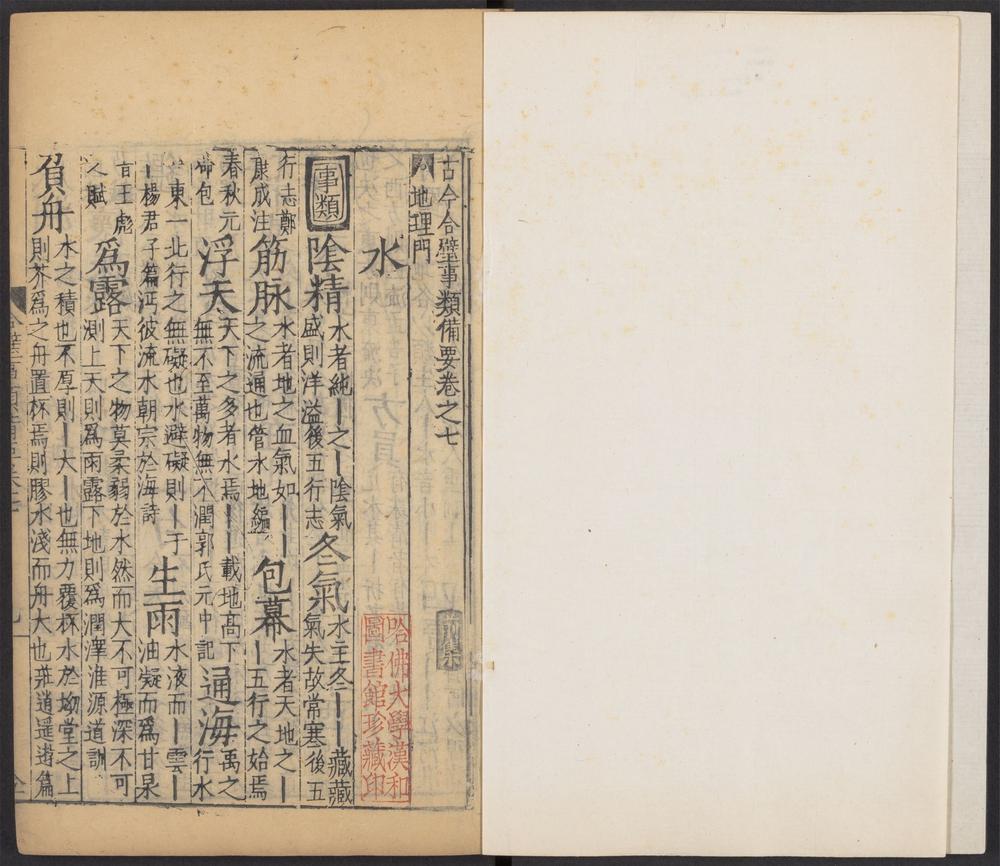 古今合璧事類備要卷之七
地理門
水
事類
陰精
水者純丨之丨陰氣
盛則洋溢後五行志
冬氣
水主冬丨丨藏藏
氣失故常寒後五
行志鄭
康成注
筋脉
水者地之血氣如丨丨
之流通也管水地編
包幕
水者天地之丨
丨五行之始焉
春秋元
命包
浮天
天下之多者水焉丨丨載地髙下
無不至萬物無不潤郭氏元中記
通海
禹之
行水
東一北行之無礙也水避礙則丨于
丨楊君子篇沔彼流水朝宗於海詩
生雨
水液而丨雲丨
油凝而爲甘泉
言王彪
之賦
爲露
天下之物莫柔弱於水然而大不可極深不可
測上天則爲雨露下地則爲潤澤淮源道訓
負舟
水之積也不厚則丨大丨也無力覆杯水於坳堂之上
則芥爲之舟置杯焉則膠水淺而舟大也莊逍遥遊篇
哈佛大學漢和
圖書館珍藏印